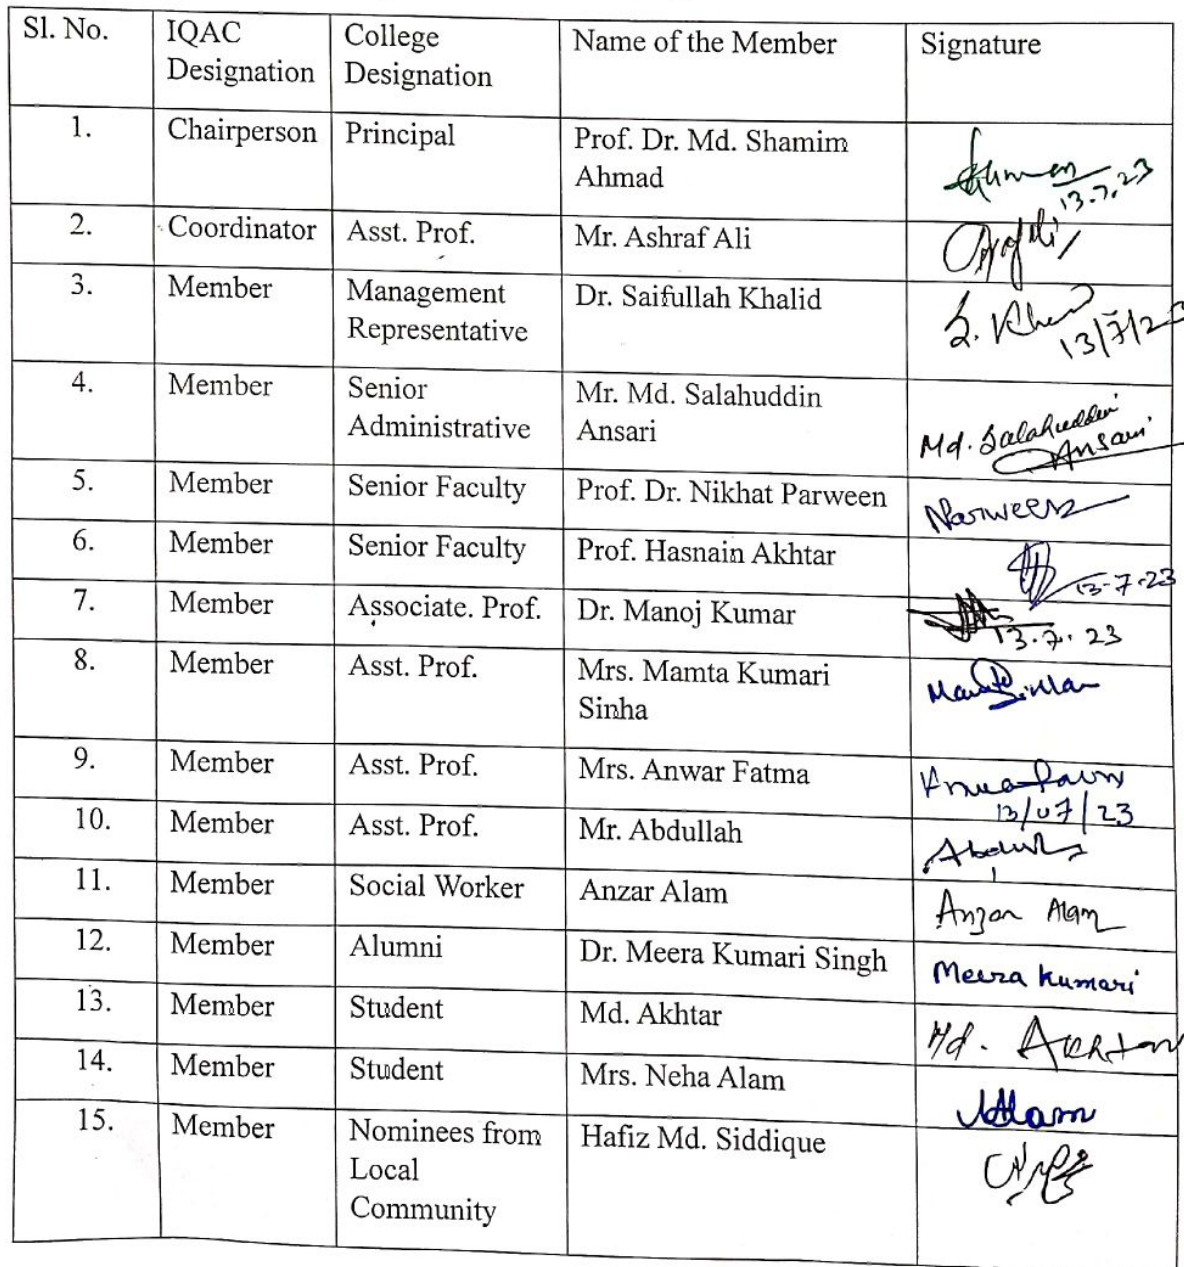 Sl. No. IQAC Designation College Designation Name of the Member Signature
1. Chairperson Principal Prof. Dr. Md. Shamim Ahmad 13.7.23
2. Coordinator Asst. Prof. Mr. Ashraf Ali
3. Member Management Representative Dr. Saifullah Khalid 13/7/23
4. Member Senior Administrative Mr. Md. Salahuddin Ansari Md. Salahuddin Ansari
5. Member Senior Faculty Prof. Dr. Nikhat Parween NParween
6. Member Senior Faculty Prof. Hasnain Akhtar 13-7-23
7. Member Associate. Prof. Dr. Manoj Kumar 13.7.23
8. Member Asst. Prof. Mrs. Mamta Kumari Sinha
9. Member Asst. Prof. Mrs. Anwar Fatma 13/07/23
10. Member Asst. Prof. Mr. Abdullah
11. Member Social Worker Anzar Alam Anzar Alam
12. Member Alumni Dr. Meera Kumari Singh Meera Kumari
13. Member Student Md. Akhtar Md. Akhtar
14. Member Student Mrs. Neha Alam NAlam
15. Member Nominees from Local Community Hafiz Md. Siddique